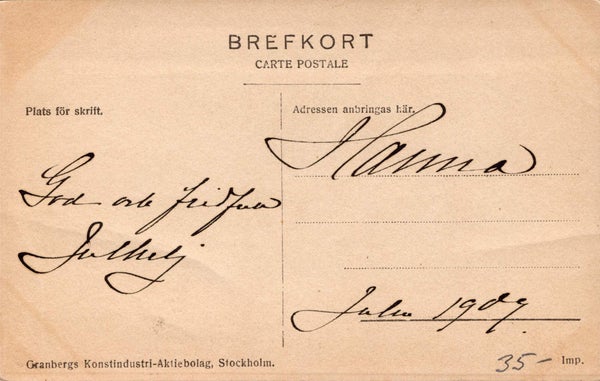 BREFKORT
CARTE POSTALE
Plats för skrift.
Adressen anbringas här.
Hanna
God och fridfull
Julhelg
Julen 1909
Granbergs Konstindustri-Aktiebolag, Stockholm.
35- Imp.